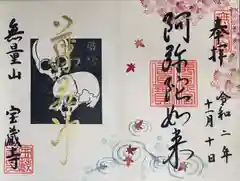 奉拝
令和二年
十月十日
阿弥陀如来
無量山
宝蔵寺